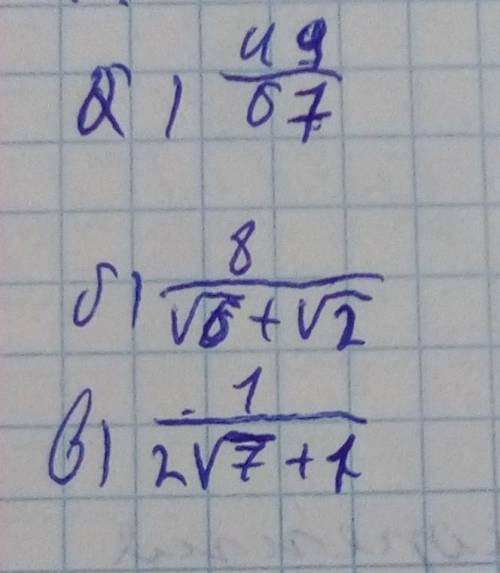 а) 49/67
б) 8/(√6+√2)
в) 1/(2√7+1)